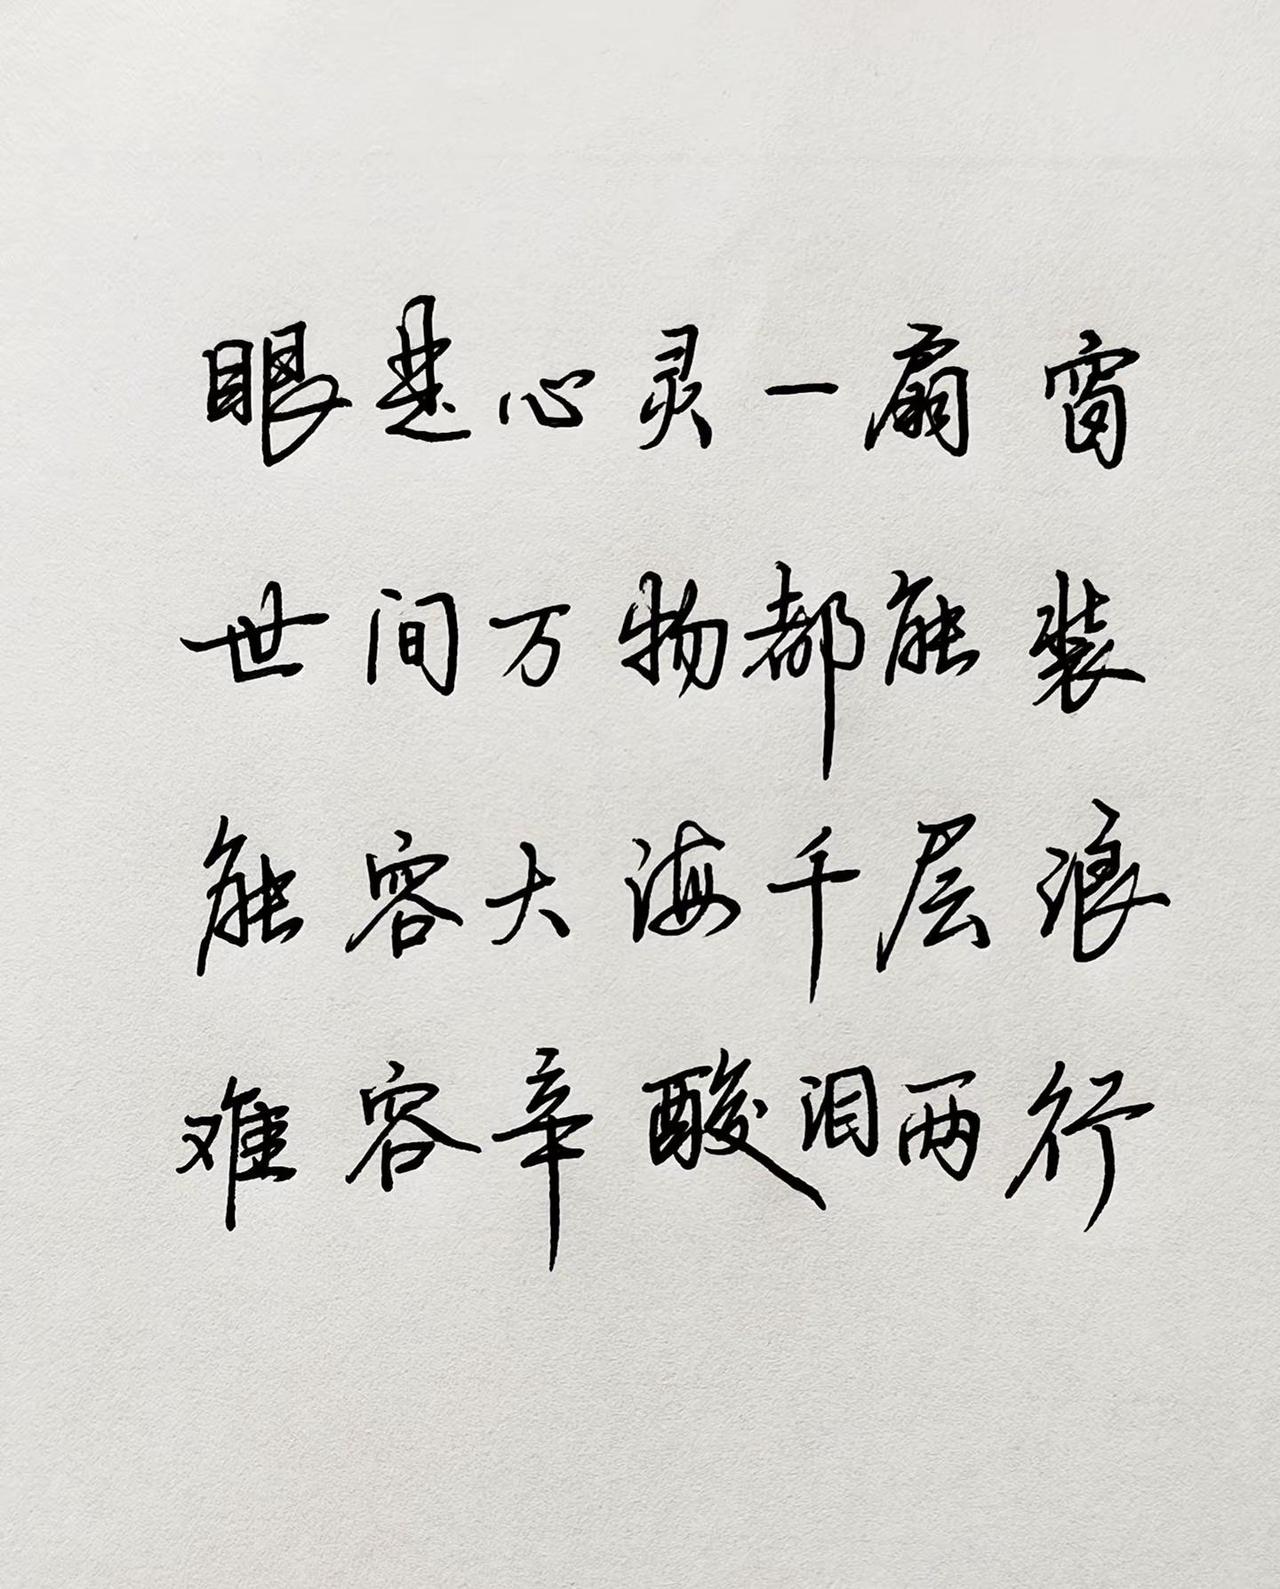 眼是心灵一扇窗
世间万物都能装
能容大海千层浪
难容辛酸泪两行